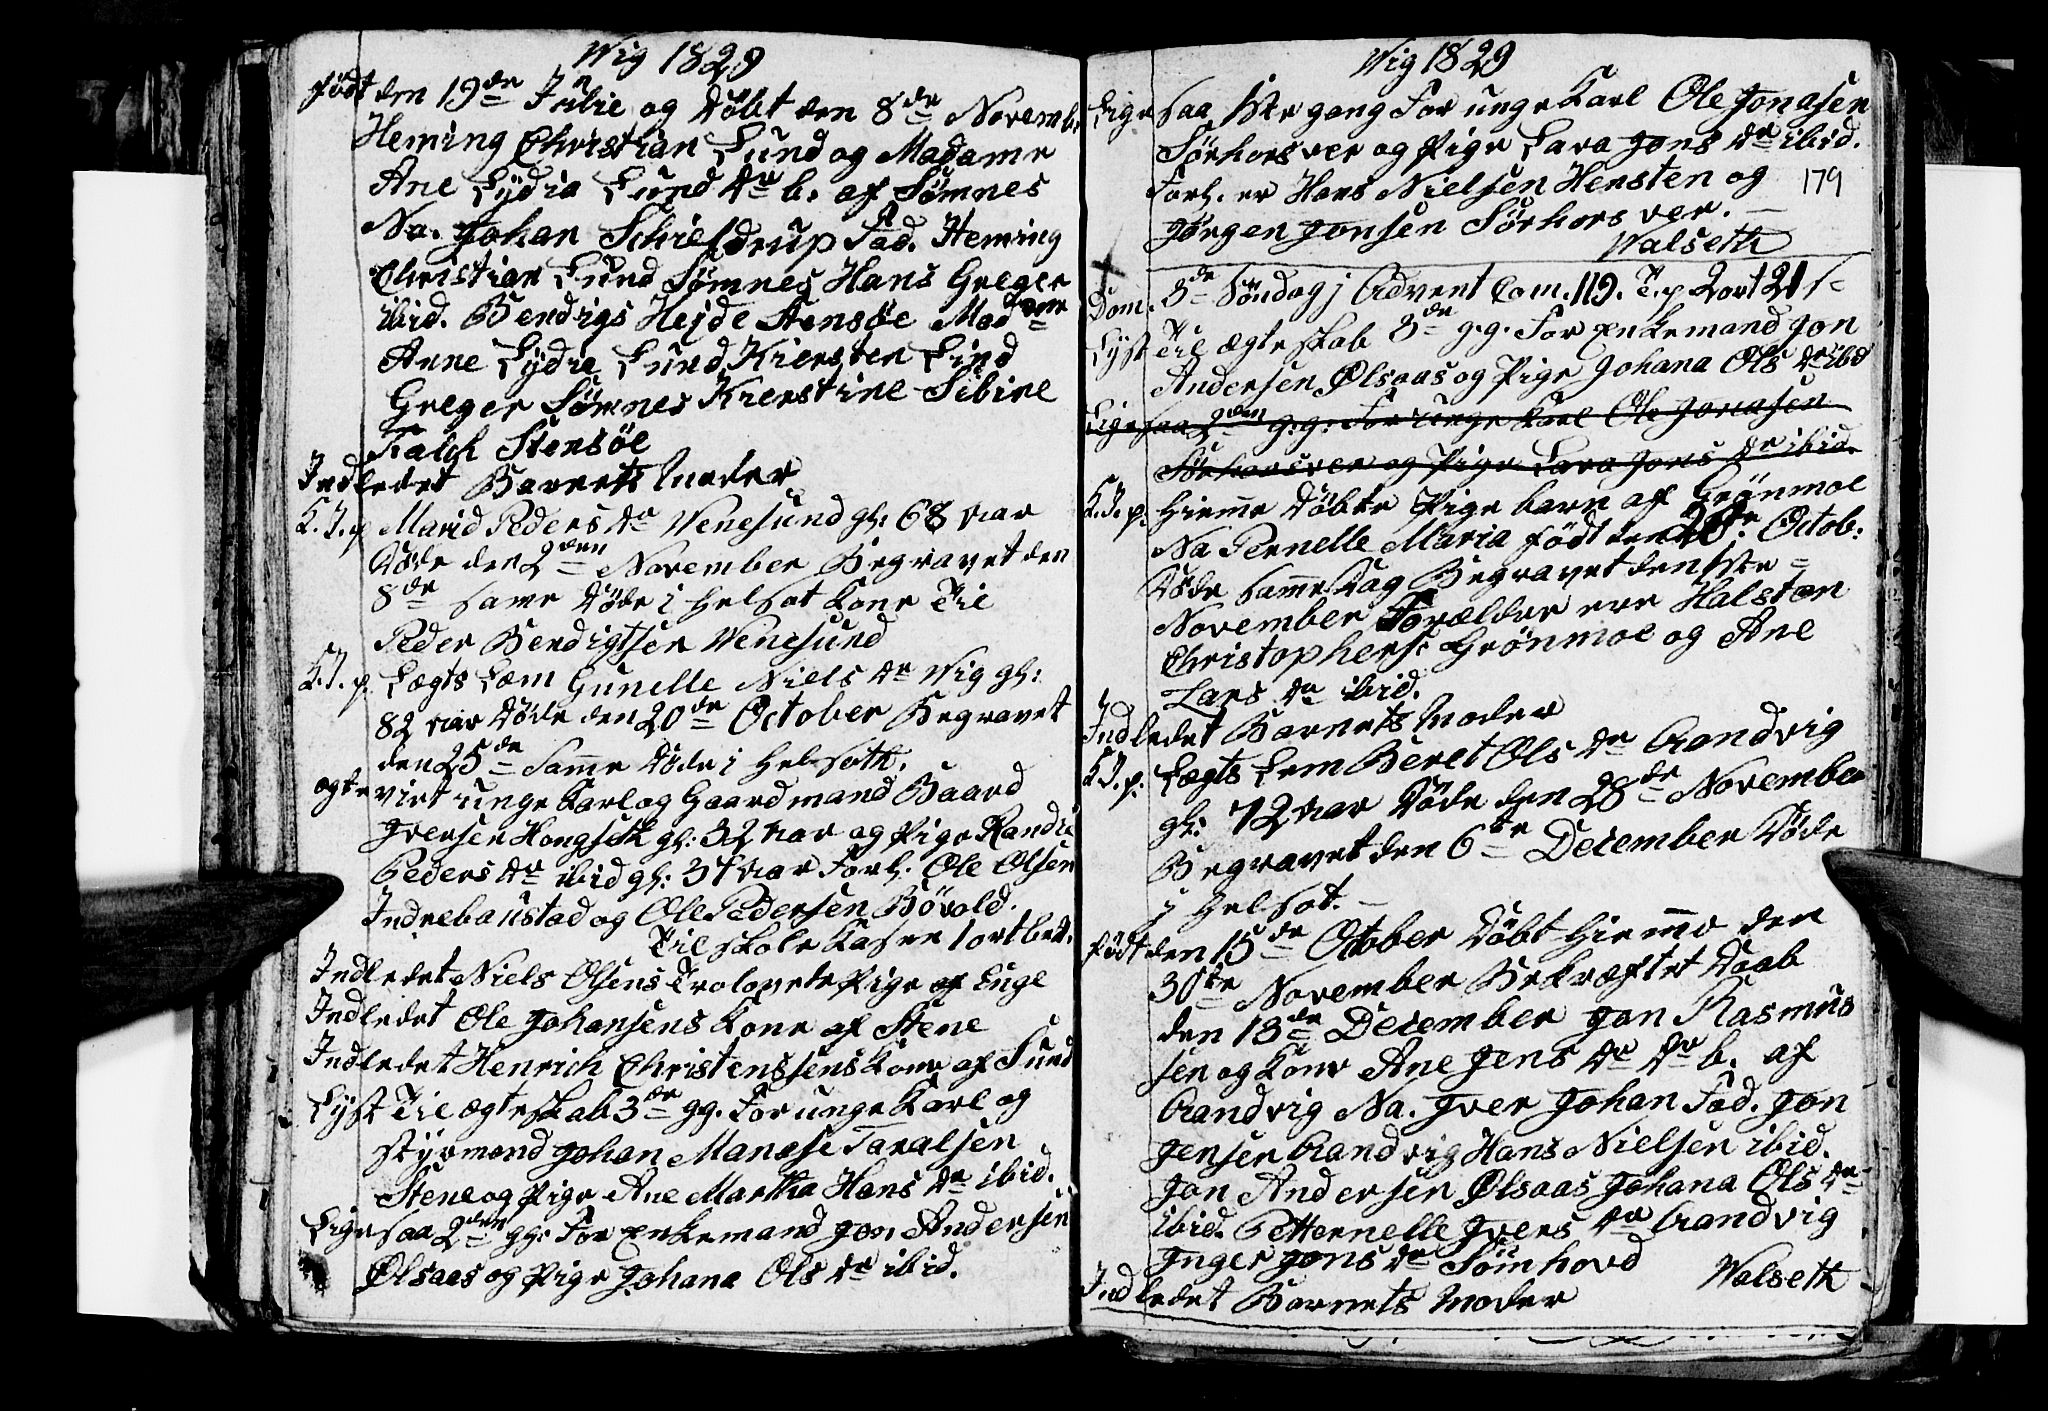 Wig 1829
født den 19de Julie og Døbt den 8de Novemb.
Heming Christian Lund og Madame
Ane Lydia Lund dr b. af Sømnes
Na. Johan Schieldrup Fad. Heming
Christian Lund Sømnes Hans Greger
ibid. Bendigs Hejde Stensøe Madme
Anne Lydie Lund Kiersten Lind
Greger Sømnes Kierstine Sibine
Falch Stensøe
Indledet Barnets Moder
K.J.p. Marid Peders dr Venesund gl: 68 aar
Døde den 2den November Begravet den
8de same Døde i Helsot Kone Til
Peder Bendigtsen Venesund
K.J.p. Lægts Læm Gunelle Niels dr Wig gl:
82 aar Døde den 20de October Begravet
den 25de Samme Døde i Helsoth.
ogte viet unge Karl og Gaardmand Baard
Iversen Hongseth gl: 32 aar og Pige Randi
Peders dr ibid gl: 34 aar Forl. Ole Olsen
Indrebaustad og Ole Pedersen Bøvold.
Til skole Kasen 1 ort bet.
Indledet Niels Olsens Trolovete Pige af Luge
Indledet Ole Johansens Kone af Stene
Indledet Henrich Christenssens Kone af Sund
Lyst Til ægteskab 3de gg. For unge Karl og
styrmand Johan Manase Taralsen
Stene og Pige Ane Martha Hans dr ibid.
Lige saa 2den gg: For Enkemand Jon Andersen
Ølsaas og Pige Johana Ols dr ibid.
Wig 1829
Lige saa 1ste gang For unge Karl Ole Jonasen
Sørhorsver og Pige Lava Jons dr ibid.
Forl. er Hans Nielsen Hensten og
179
Jørgen Jonsen Sørhorsver.
Walseth
Dom. 3de Søndag j Advent Com. 119. T.p 2 ort 21 s
Lyst Til ægteskab 3de g.g. For Enkemand Jon
Andersen Ølsaas og Pige Johana Ols dr ibd
Lige saa 2den g:g: For unge Karl Ole Jonasen
Sørhorsver og Pige Lava Jons dr ibid.
K.J.p. Hieme Døbte Pige barn af Grønmoe
Na Pernelle Maria født den 28de Octob:
Døde Same Dag Begravet den 1ste
November Forælder ere Halsten
Christophers: Grønmoe og Ane
Lars dr ibid.
Indledet Barnets Moder
K.J.p. Lægts Lem Beret Ols dr Brandvig
gl: 72 aar Døde den 28de November
Begravet den 6te December Døde
j Helsot.
født den 15de Otober Døbt Hieme den
30te November Bekræftet Daab
den 13de December Jon Rasmus
sen og Kone Ane Jens dr dr b. af
Brandvig Na. Iver Johan Fad. Jon
Jensen Brandvig Hans Nielsen ibid.
Jon Andersen Ølsaas Johana Ols dr
ibid. Petternelle Ivers dr Brandvig
Inger Jons dr Sømhovd
Walseth
Indledet Barnets Moder